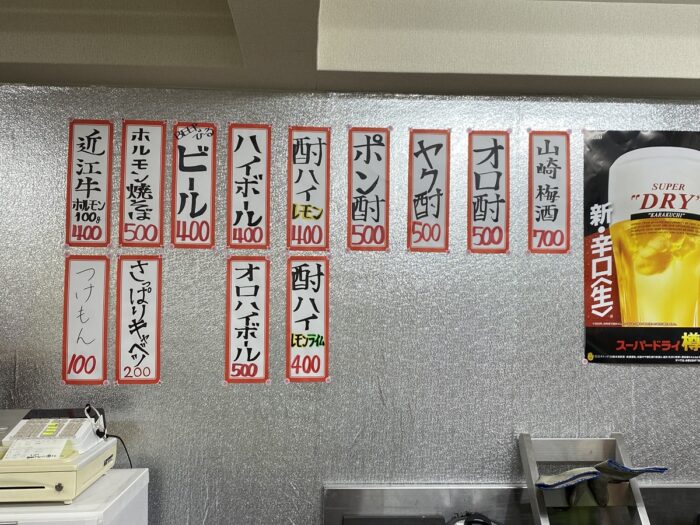 近江牛
ホルモン
100g
400
ホルモン焼そば
500
ビール
400
ハイボール
400
酎ハイ
レモン
400
ポン酎
500
ヤク酎
500
オロ酎
500
山崎梅酒
700
つけもん
100
さっぱりキャベツ
200
オロハイボール
500
酎ハイ
レモンライム
400
SUPER
"DRY"
"KARAKUCHI"
新・辛口〈生〉
スーパードライ 樽